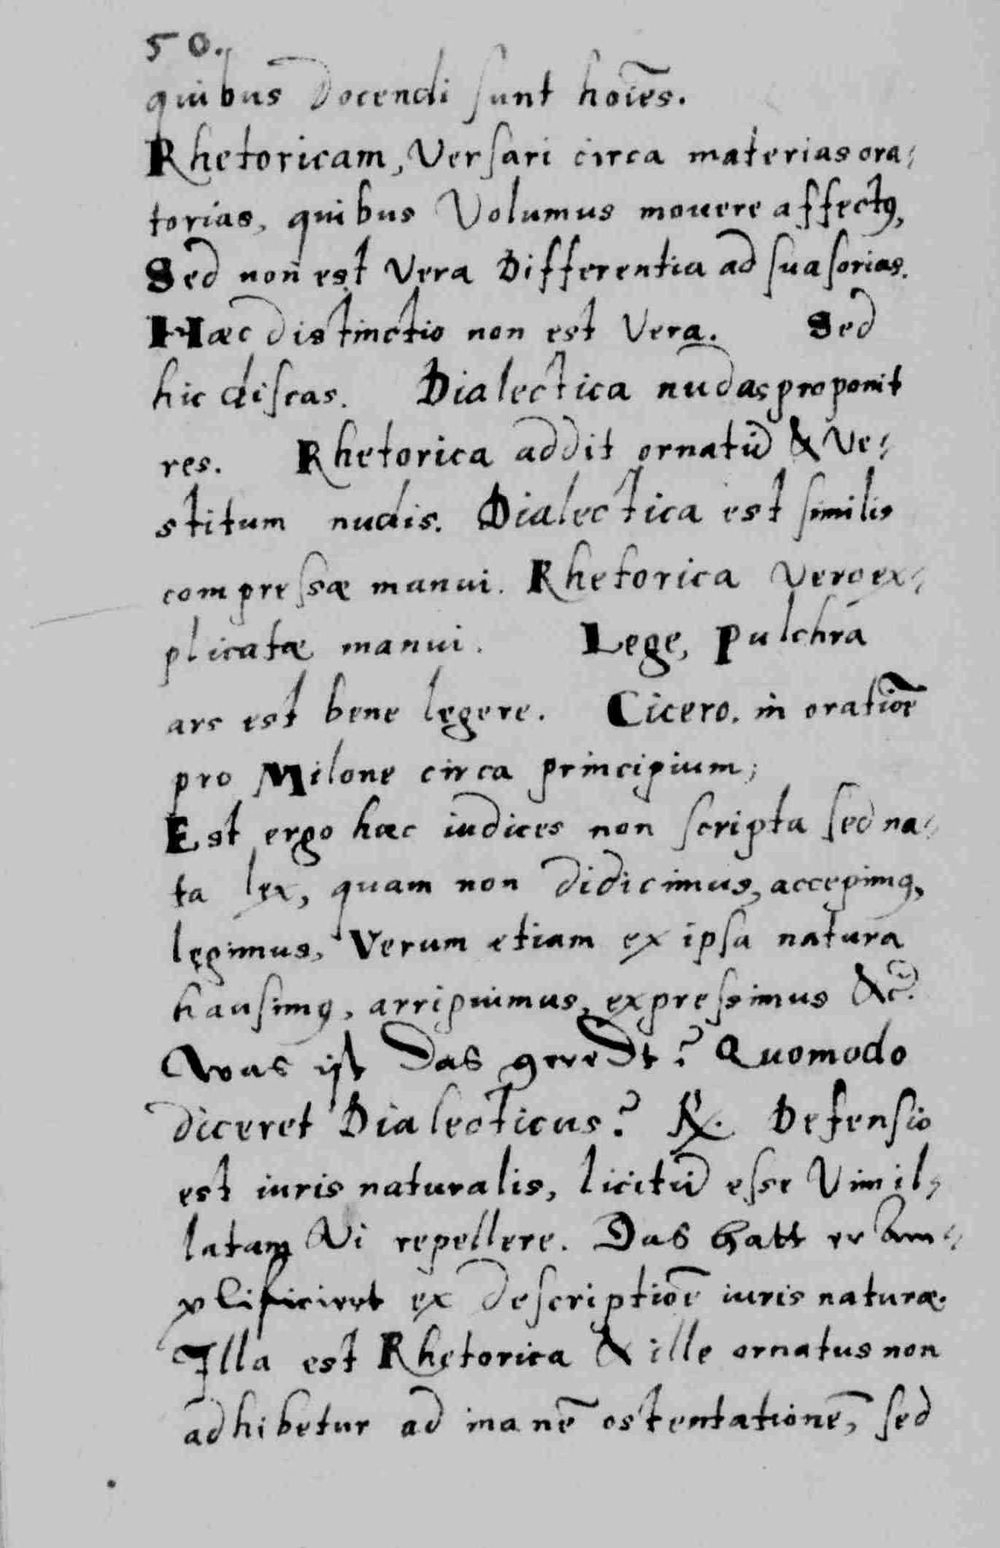 50.
quibus Docendi sunt hoīes.
Rhetoricam, Versari circa materias ora-
torias, quibus Volumus mouere affectꝰ,
Sed non est Vera Differentia ad suasorias.
Hæc distinctio non est Vera. Sed
hic discas. Dialectica nudas proponit
res. Rhetorica addit ornatū & Ve-
stitum nudis. Dialectica est similis
compressæ manui. Rhetorica Vero ex-
plicatæ manui. Lege, Pulchra
ars est bene legere. Cicero. in oratiōe
pro Milone circa principium;
Est ergo hæc iudices non scripta sed na-
ta lex, quam non didicimus, accepimꝰ,
legimus, Verum etiam ex ipsa natura
hausimꝰ, arripuimus, expressimus &c.
Was ist Das geredt? Quomodo
diceret Dialecticus? ℟. Defensio
est iuris naturalis, licitū esse Vim il-
latam Vi repellere. Das hatt er Am-
plificiret ex descriptiōe iuris naturæ.
Illa est Rhetorica & ille ornatus non
adhibetur ad inanē ostentationē, sed